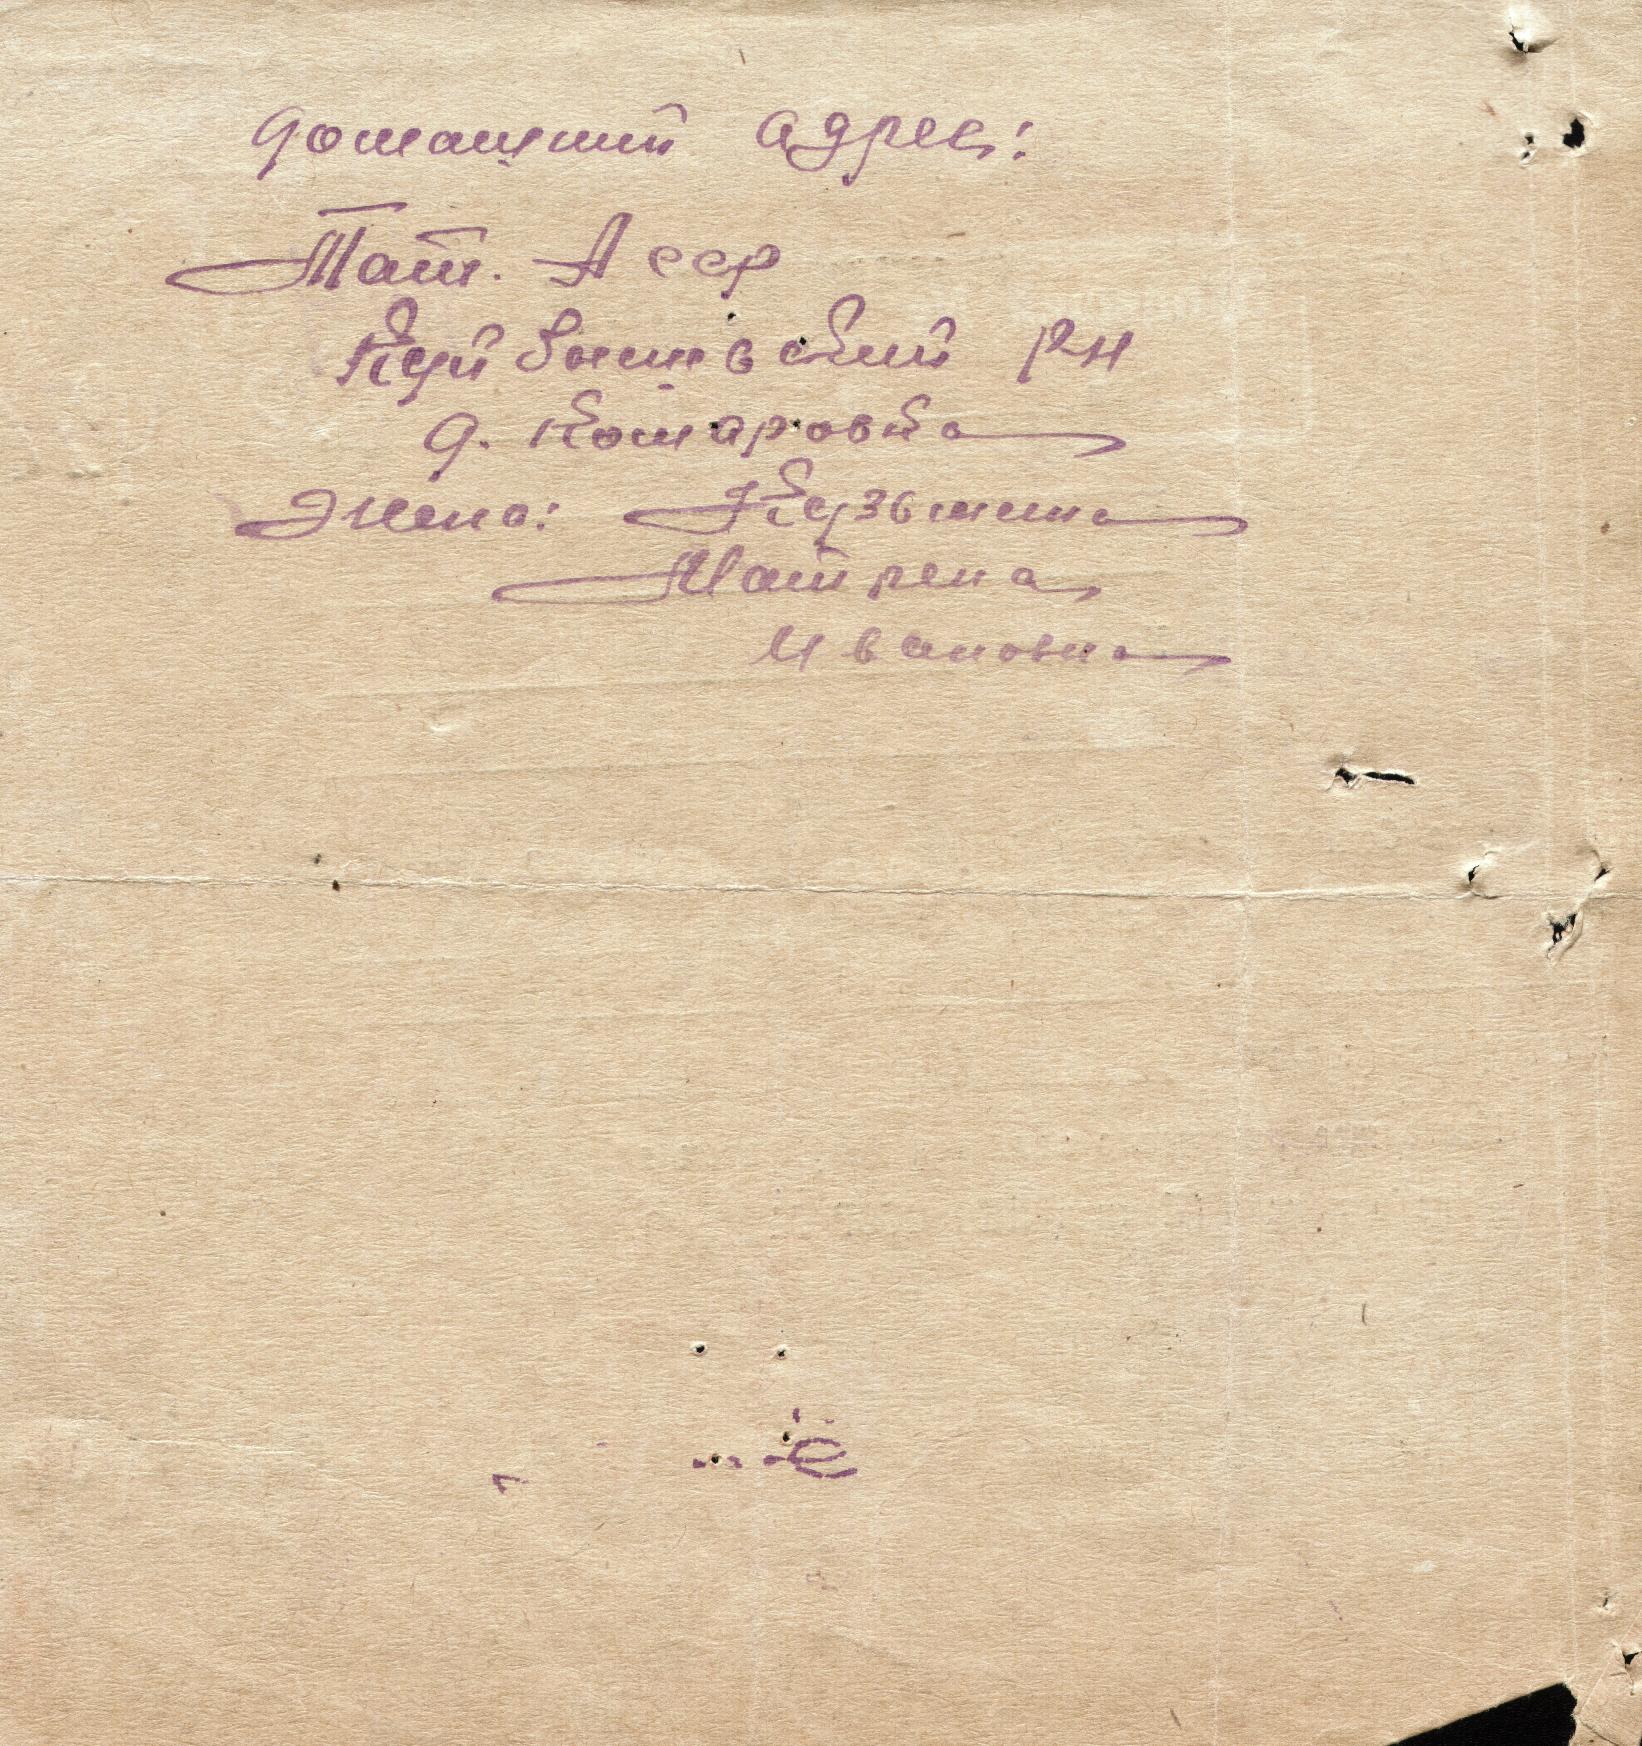 домашний адрес:
Тат. Асср
Куйбышевский рн
д. Комаровка
Жена: Кузьмина
Матрена
Ивановна